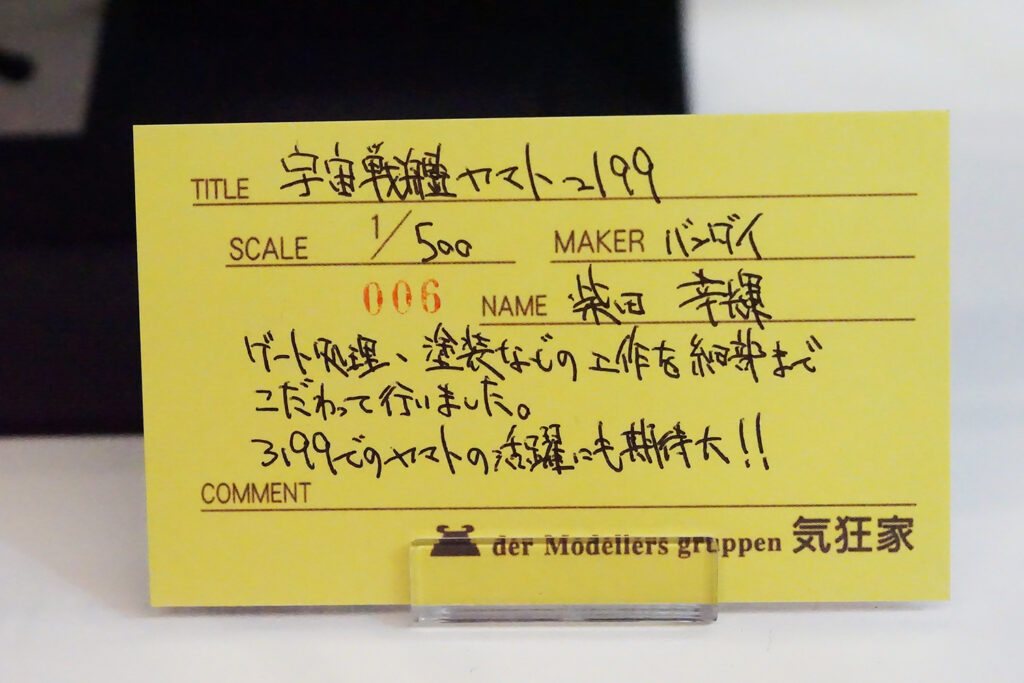 TITLE 宇宙戦艦ヤマト2199
SCALE 1/500 MAKER バンダイ
006 NAME 柴田 幸輝
ゲート処理、塗装などの工作を細部まで
こだわって行いました。
3199でのヤマトの活躍にも期待大!!
COMMENT
der Modellers gruppen 気狂家